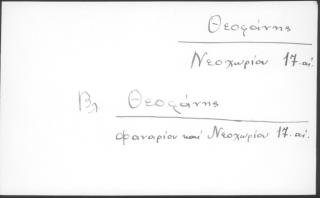 Θεοφάνης
Νεοχωρίου 17. αἰ.
Βλ Θεοφάνης
Φαναρίου καί Νεοχωρίου 17. αἰ.